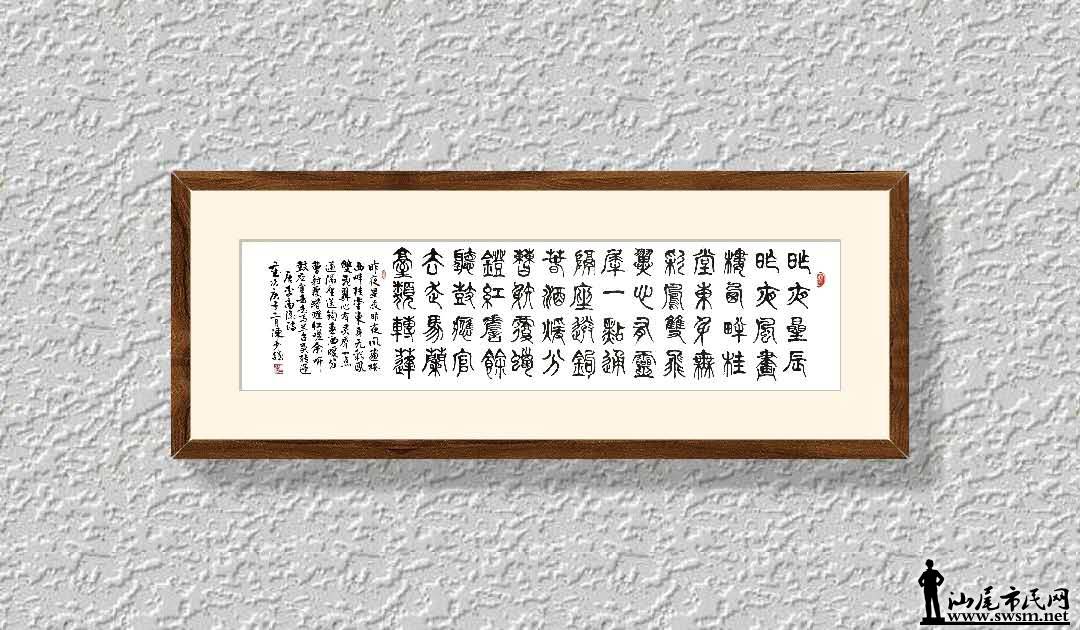 昨夜星辰
昨夜風畫
樓西畔桂
堂東身無
彩鳳雙飛
翼心有靈
犀一點通
隔座送鉤
春酒暖分
曹射覆蠟
鐙紅嗟餘
聽鼓應官
去走馬蘭
臺類轉蓬
昨夜星辰昨夜風畫樓
西畔桂堂東身無彩鳳
雙飛翼心有靈犀一點
通隔座送鉤春酒暖分
曹射覆蠟燈紅嗟余聽
鼓應官去走馬蘭臺類轉蓬
唐李商隱詩
汕尾市民网
www.swsm.net